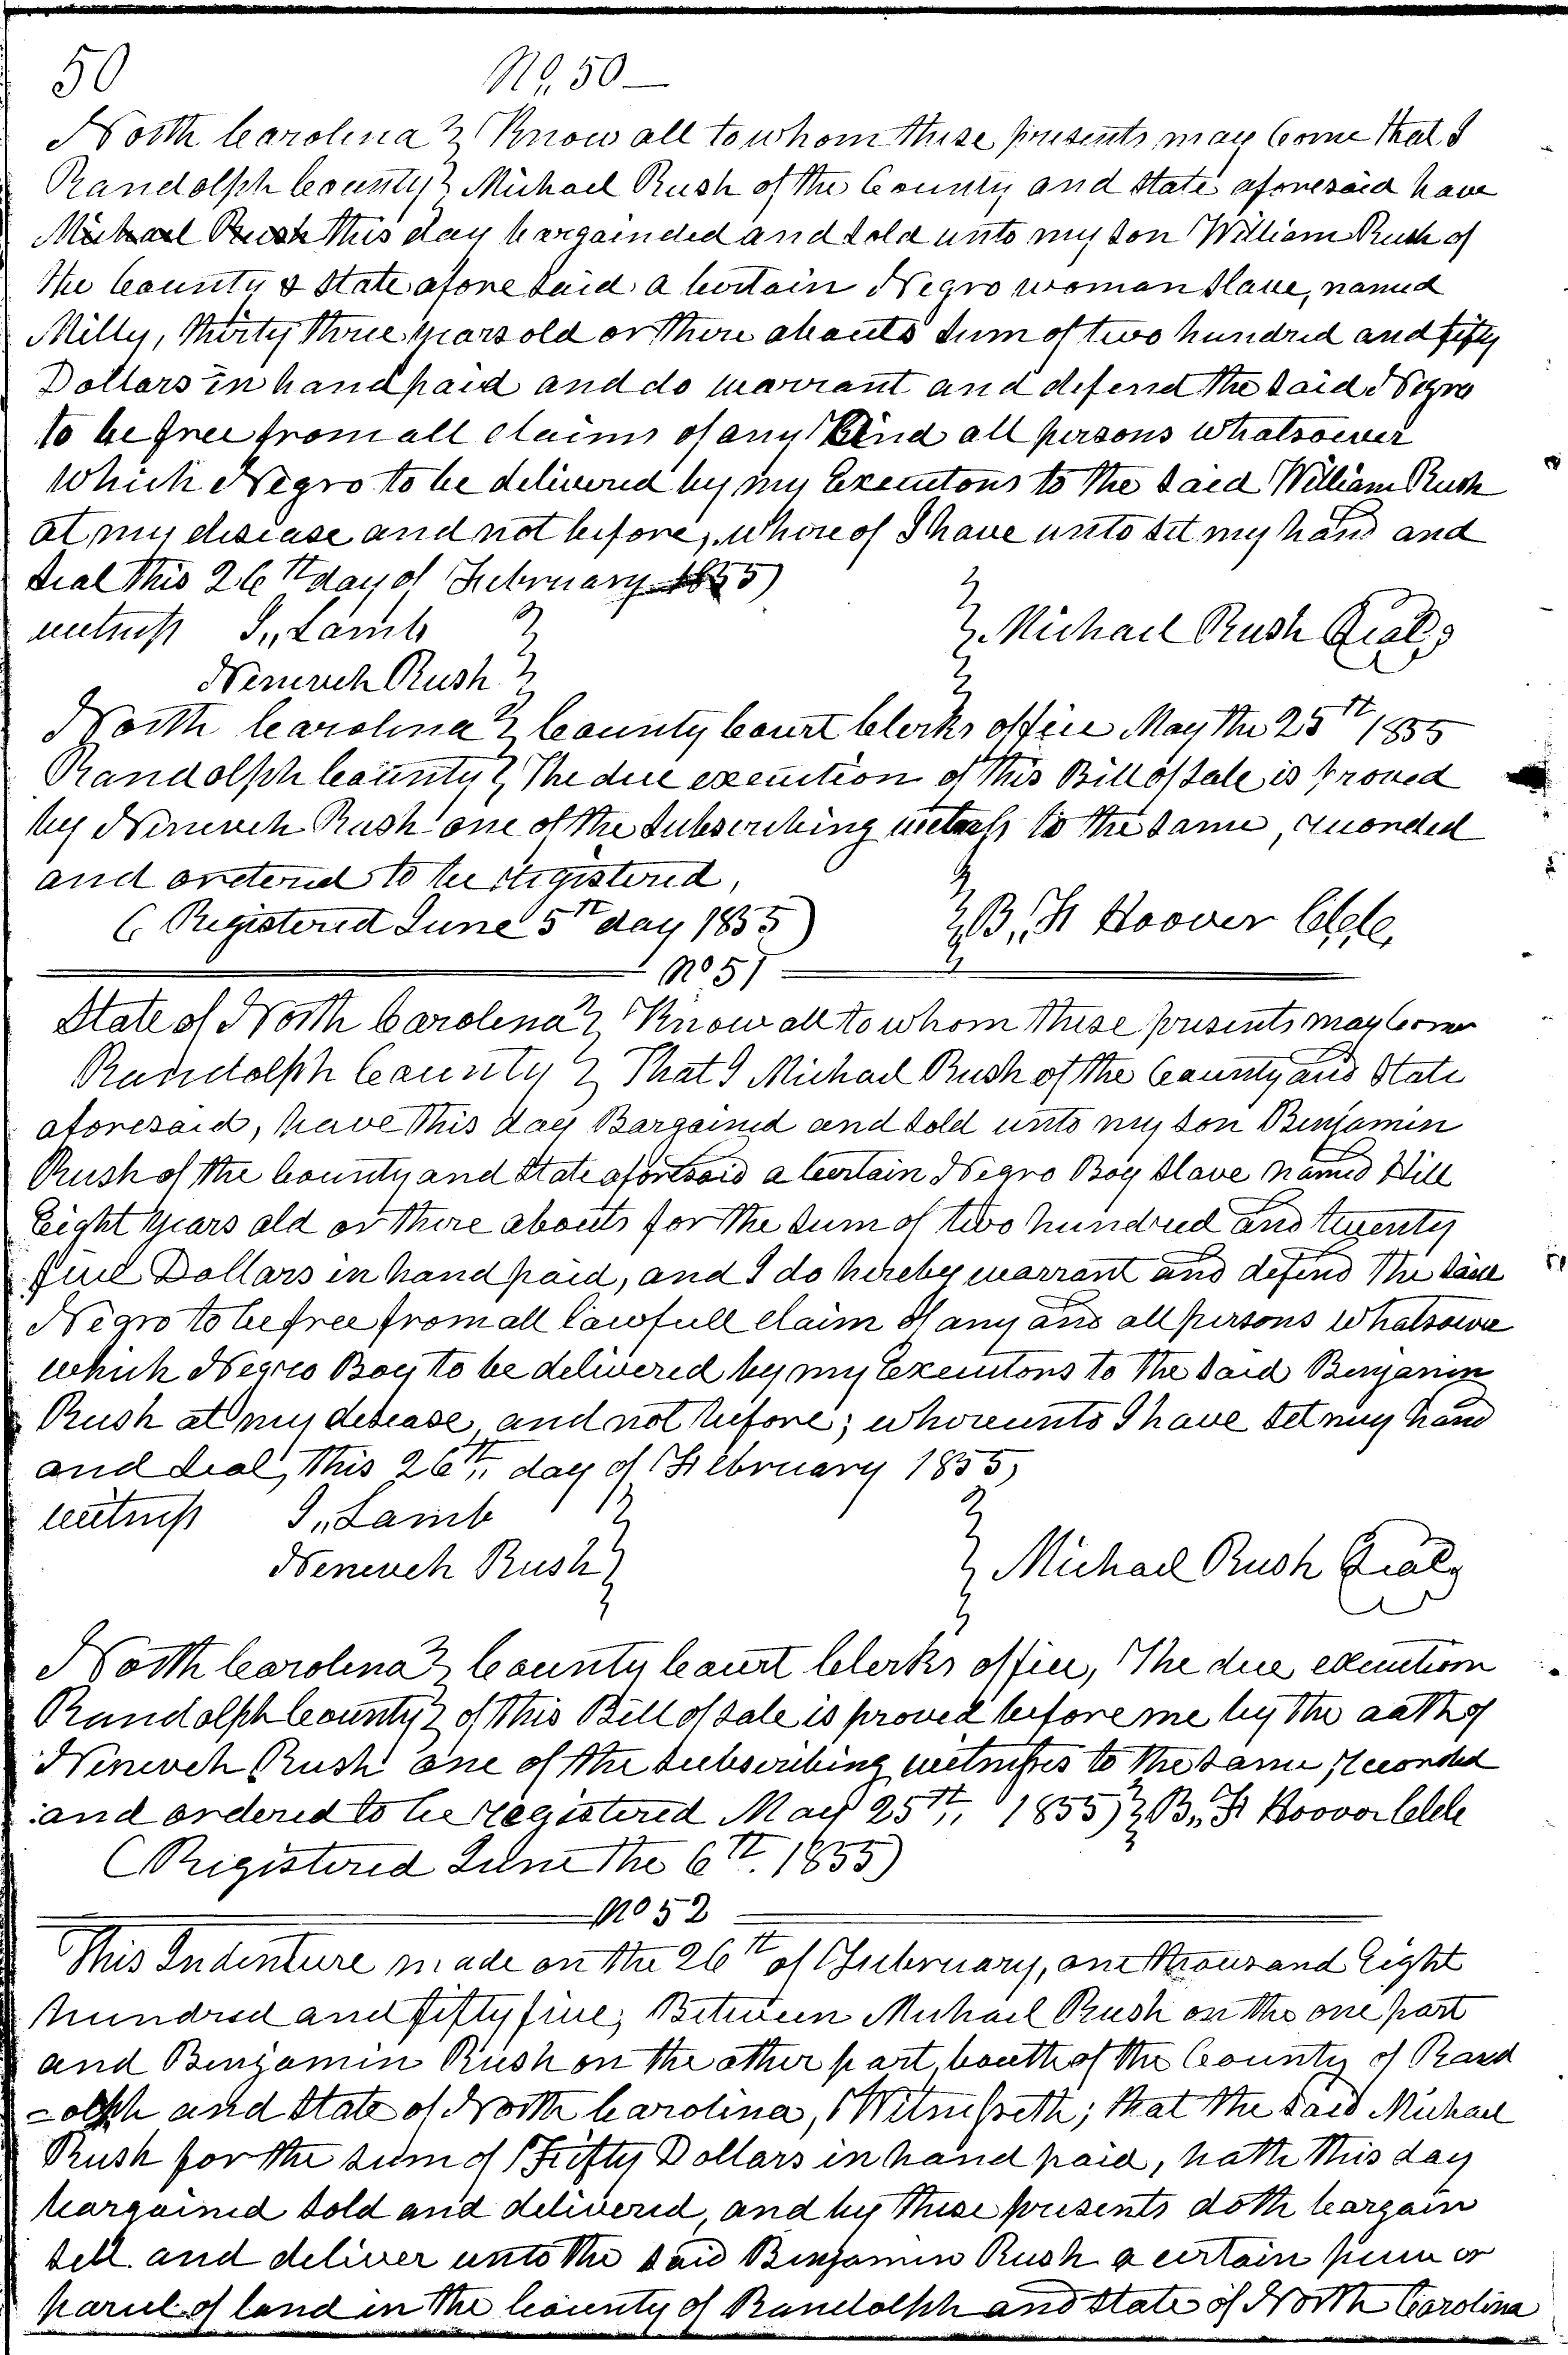 50 No. 50
North Carolina } Know all to whom these presents may Come that I
Randolph County } Michael Rush of the County and State aforesaid have
Michael Rush this day bargainded and sold unto my son William Rush of
the County & State afore said a Certain Negro woman slave, named
Milly, thirty three years old or there abouts sum of two hundred and fifty
Dollars in hand paid and do warrant and defend the said Negro
to be free from all claims of any Kind all persons whatsoever
which Negro to be delivered by my Executors to the said William Rush
at my disease and not before, where of I have unto set my hand and
seal this 26th day of February 1855)
witness I,, Lamb } } Michael Rush Seal
Neneveh Rush }
North Carolina } County Court Clerks office May the 25th 1855
Randolph County } The due execution of this Bill of sale is proved
by Neneveh Rush one of the subscribing witness to the same, recorded
and ordered to be registered,
( Registered June 5th day 1855) } B,, F Hoover Clk,
No 51
State of North Carolina } Know all to whom these presents may Come
Randolph County } That I Michael Rush of the County and State
aforesaid, have this day Bargained and sold unto my son Benjamin
Rush of the County and State aforesaid a Certain Negro Boy slave named Will
Eight years old or there abouts for the sum of two hundred and twenty
five Dollars in hand paid, and I do hereby warrant and defend the said
Negro to be free from all lawfull claim of any and all persons whatsoever
which Negro Boy to be delivered by my Executors to the said Benjamin
Rush at my desease and not before; whereunto I have set my hand
and seal, this 26th,, day of February 1855,
witness I,, Lamb }
Neneveh Rush } } Michael Rush Seal
North Carolina } County Court Clerks office, The due execution
Randolph County } of this Bill of sale is proved before me by the oath of
Neneveh Rush one of the subscribing witnesses to the same, recorded
and ordered to be registered May 25th, 1855) } B,, F Hoover Clk
(Registered June the 6th. 1855)
No 52
This Indenture made on the 26th of February, one thousand Eight
hundred and fifty five; Between Michael Rush on the one part
and Benjamin Rush on the other part, bouth of the County of Rand
-olph and State of North Carolina, Witnesseth; that the said Michael
Rush for the sum of Fifty Dollars in hand paid, hath this day
bargained sold and delivered, and by these presents doth bargain
sell and deliver unto the said Benjamin Rush a certain piece or
parcel of land in the County of Randolph and State of North Carolina